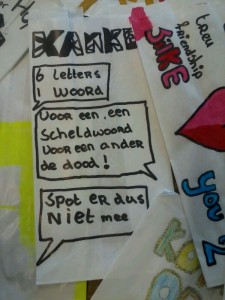 KANKE
6 letters
1 woord
Voor een, een
scheldwoord
Voor een ander
de dood!
Spot er dus
niet mee
treu
friendship
SiKE
you 2